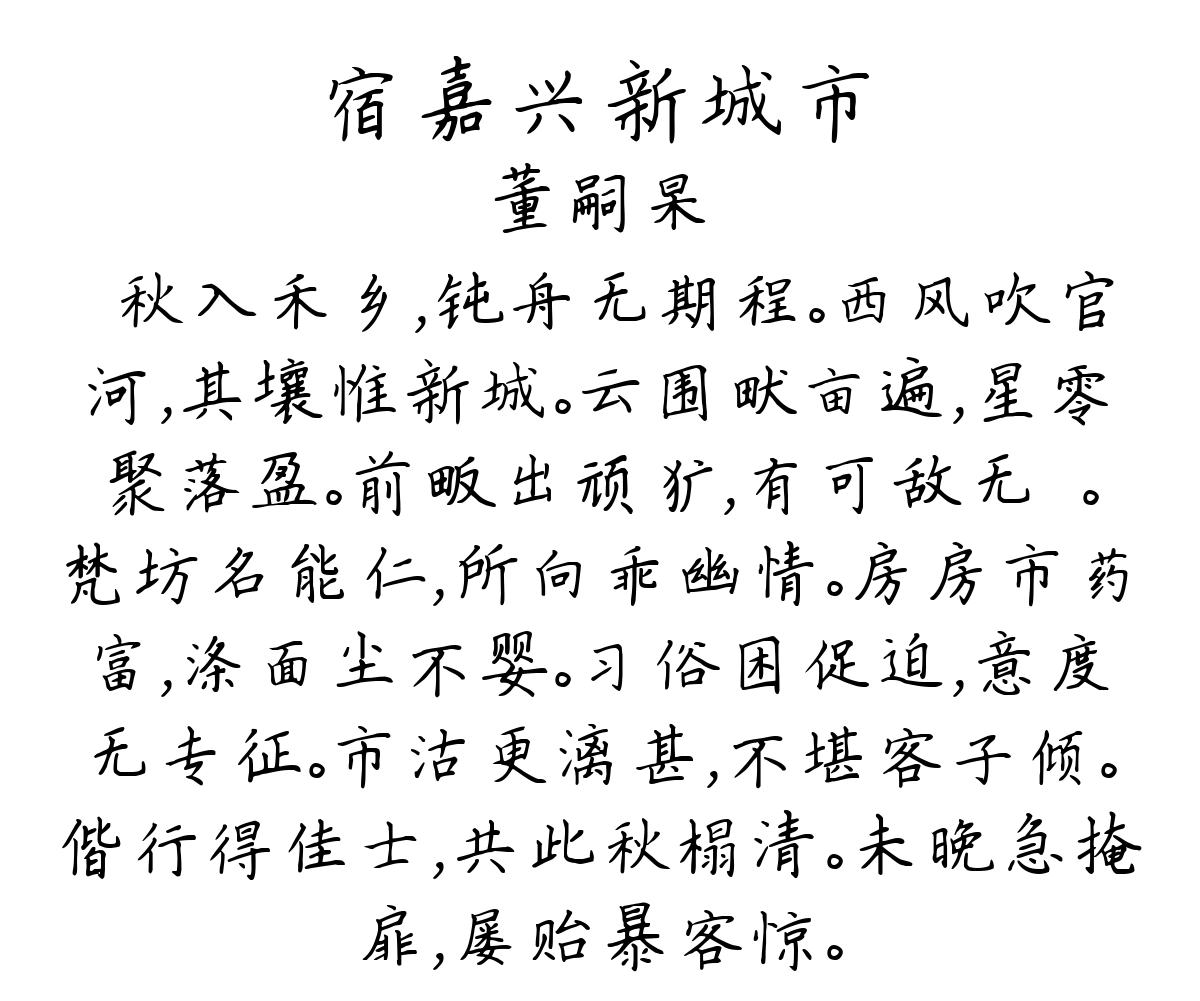 宿嘉兴新城市
董嗣杲
秋入禾乡,钝舟无期程。西风吹官
河,其壤惟新城。云围畎亩遍,星零
聚落盈。前畈出顽犷,有可敌无 。
梵坊名能仁,所向乖幽情。房房市药
富,涤面尘不婴。习俗困促迫,意度
无专征。市沽更漓甚,不堪客子倾。
偕行得佳士,共此秋榻清。未晚急掩
扉,屡贻暴客惊。